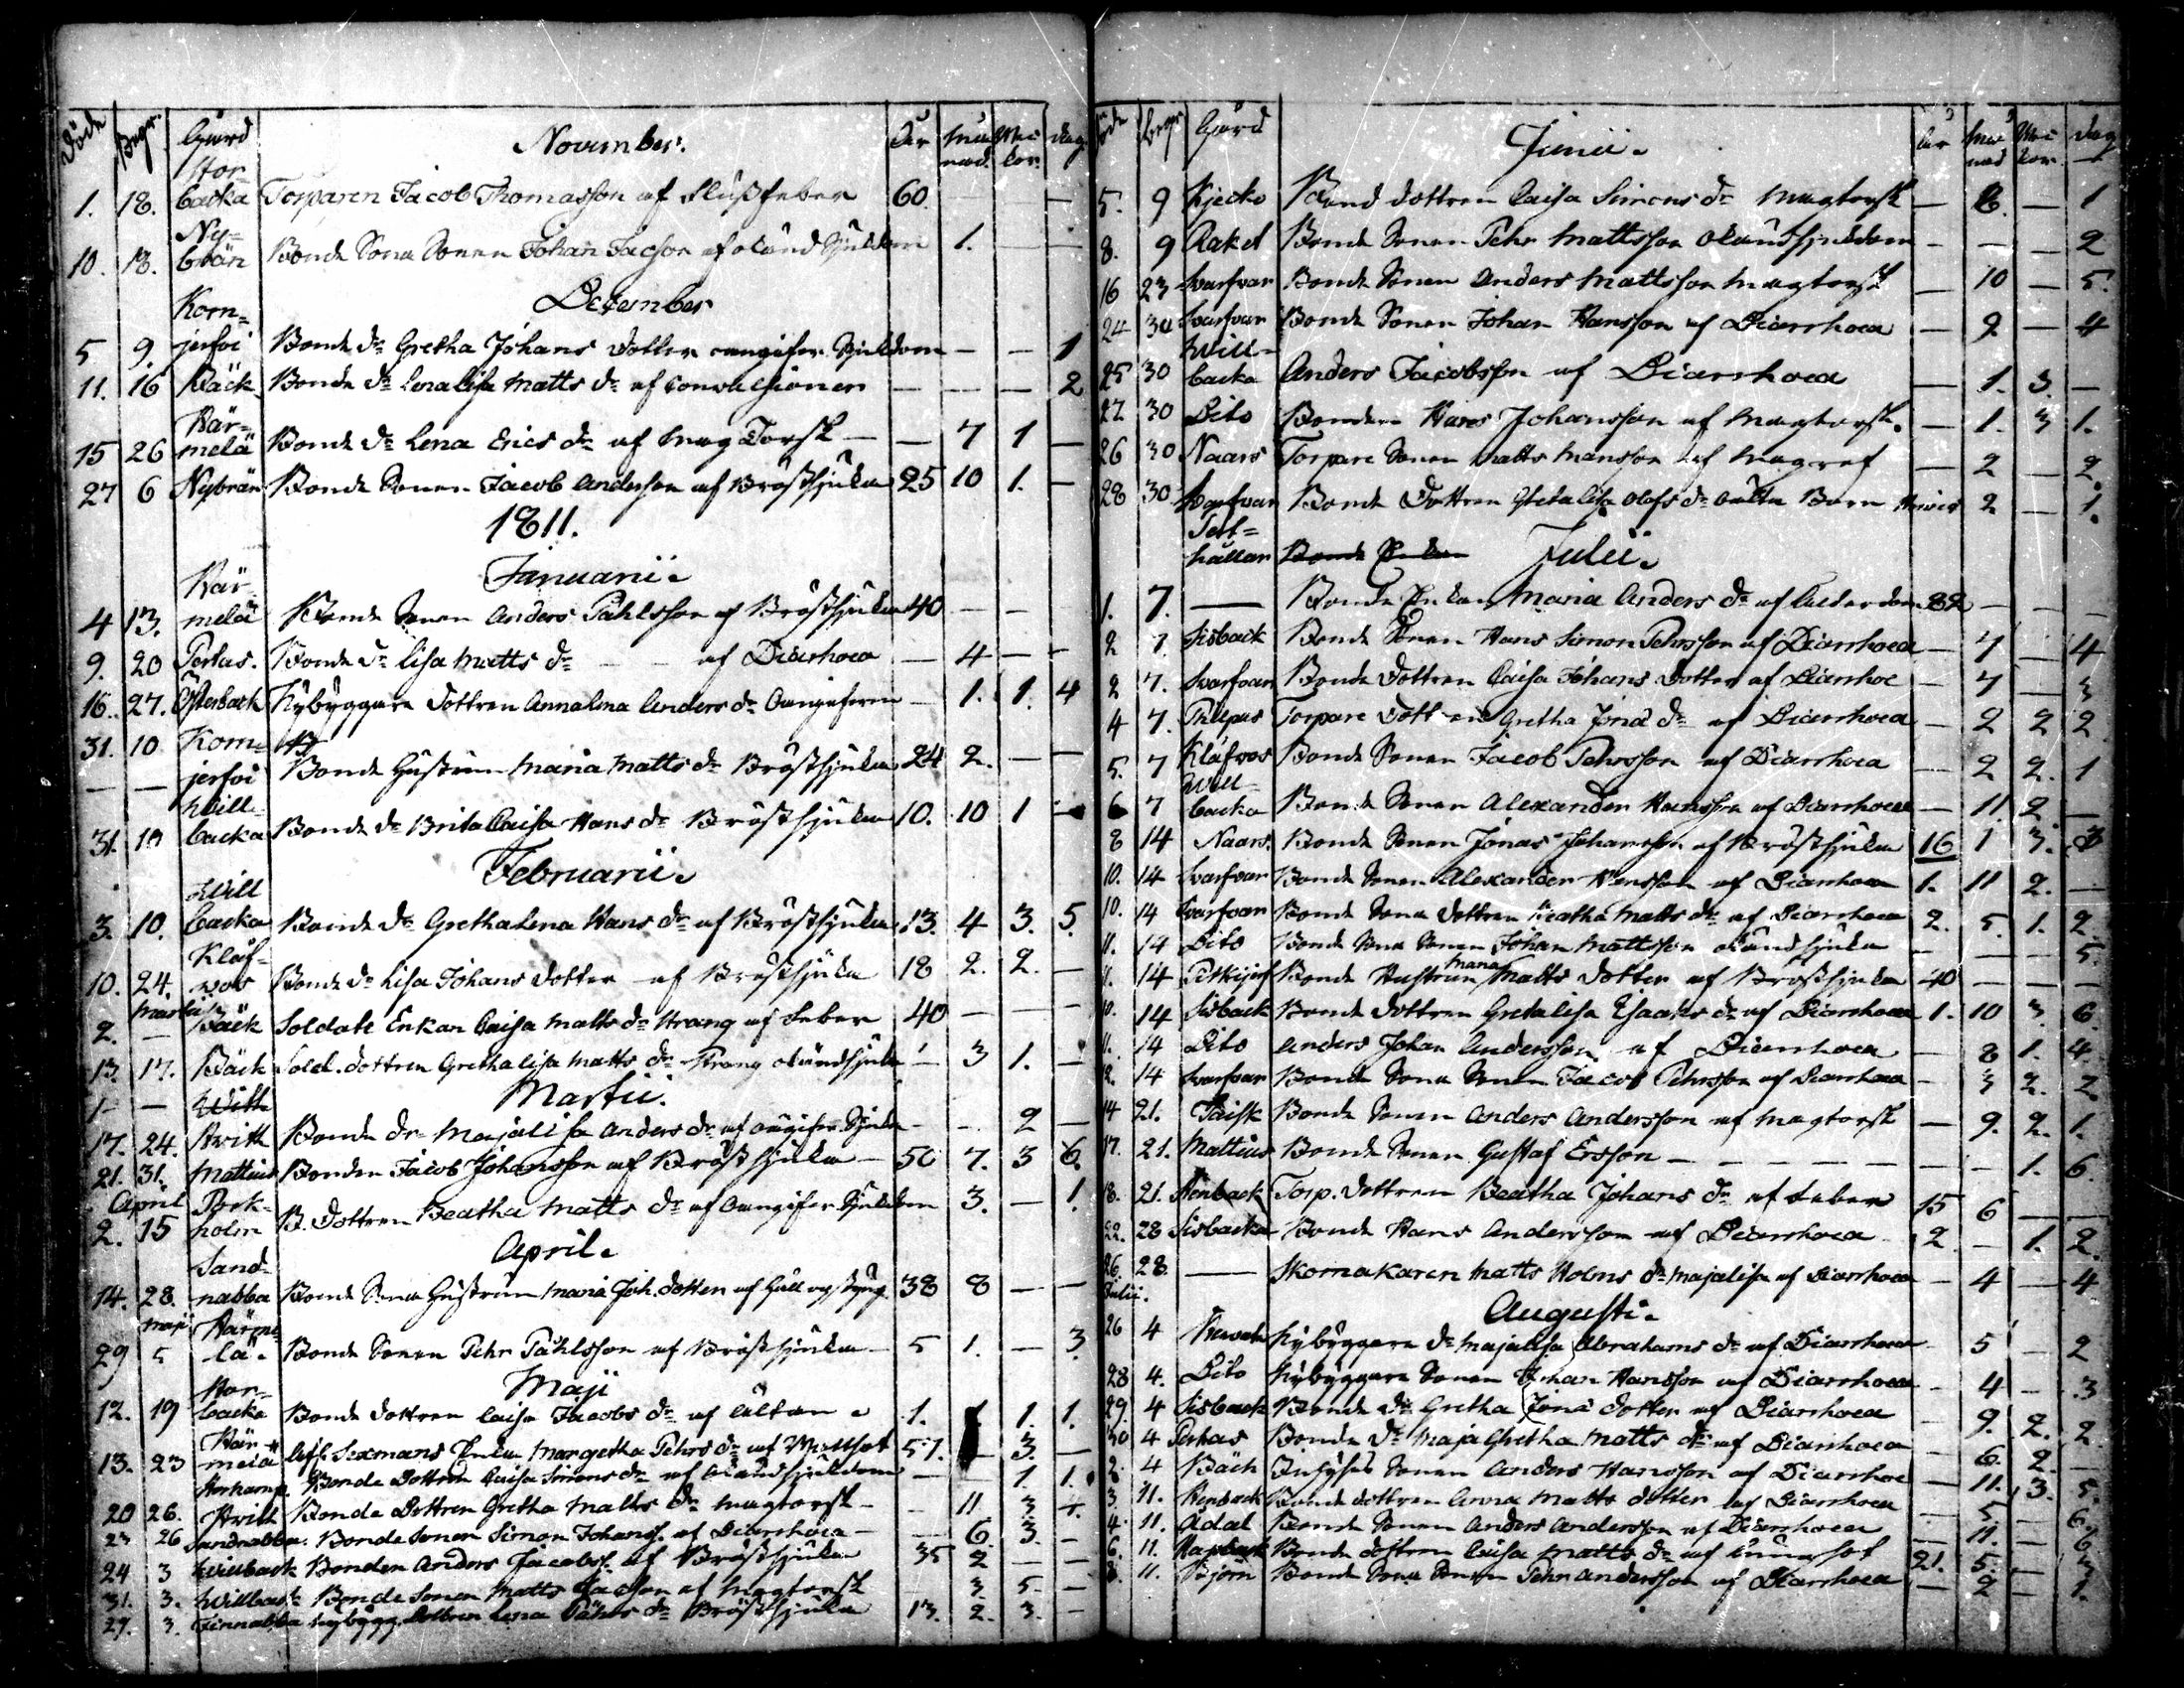 Döde Begr. Gård November. År månad. veckor. dag.
Stor-
1. 18. backa Torparen Jacob Thomasson af Flussfeber 60. — — —
Ny-
10. 18. brän Bonde Sona Sonen Johan Jacsson af okänd Sjukdom 1. — —
December
Korn-
5 9. jerfvi Bonde Dr Gretha Johans dotter oangifven Sjukdom — — 1
11. 16 Bäck Bonde Dr Lena Lisa Matts dr af Convulsioner — — — 2
Kär-
15 26 melä Bonde Dr Lena Erics dr af Mag Torsk — — 7 1 —
27 6 Nybrän Bonde Sonen Jacob Andersson af Bröstsjuka 25 10 1. —
1811.
Januarii.
Kär-
4 13. melä Bonde Sonen Anders Påhlsson af Bröstsjuka 40 — —
9. 20 Perhas. Bonde Dr Lisa Matts dr — — af Diarhoea — 4 — —
16. 27. Österback Nybyggare dottren Annalena Anders dr Oangifven — 1. 1. 4
31. 10 Korn-
— — jerfvi Bonde Hustrun Maria Matts dr Bröstsjuka 24 2. — —
Will-
31. 10 backa Bonde Dr Brita Caisa Hans dr Bröstsjuka 10. 10 1 —
Februarii.
Will
3. 10. backa Bonde Dr Grethalena Hans dr af Bröstsjuka 13. 4 3. 5.
Klåf-
10. 24. wos Bonde Dr Lisa Johans dotter af Bröstsjuka 18 2. 2. —
Martii
2. — Bäck Soldate Enkan Caisa Matts dr Strang af Feber 40 — —
13. 17. Bäck Sold. dottren Grethalisa Matts dr Strang okändsjuka — 3 1. —
Martii.
1 — — Witt
17. 24. Hwitt Bonde Dr Majalisa Anders dr af oangifven Sjuka — — 2 —
21. 31. Mattius Bonden Jacob Johansson af Bröstsjuka — 50 7. 3 6.
April Pork-
2. 15 holm B. dottren Beatha Matts dr af Oangifven Sjukdom 3. — 1.
April.
Sand-
14. 28. nabba Bonde Sona Hustrun Maria Joh. dotter af Håll og styng 38 8 — —
Maji Kärme-
29 5 lä. Bonde Sonen Pehr Påhlsson af Bröstsjuka — 5 1. — 3.
Maji
Stor-
12. 19 backa Bonde dottren Caisa Jacobs dr af Ältan 1. 1. 1.
Kär-
13. 23 melä Afl. Sexmans Enka Margetha Pehrs dr af 57. — 3. —
Bonde Dottren Caisa Simons dr af okändsjukdom — — 1. 1.
20 26. Hwitt Bonde Dottren Gretha Matts dr Magtorsk — — 11 3 +
23 26 Sandnabba. Bonde Sonen Simon Johanss. af Diarrhoea — — 6. 3. —
24 3 Willback Bonden Anders Jacobss. af Bröstsjuka 35 2 — —
31. 3. Willback Bonde Sonen Matts Jacsson af Magtorsk 3 5 —
29. 3. Finnabba Nybygg. dottren Lena Påhls dr Bröstsjuka 13. 2. 3. —
Döde Begr. Gård Junii. År månad veckor. dag
5. 9 Kjecko Bond dottren Caisa Simons dr Magtorsk — 8. — 1
8. 9 Rakel Bonde Sonen Pehr Mattsson okändsjukdom — — — 2
16 23 Svarfvar Bonde Sonen Anders Mattsson Magtorsk — 10 — 5.
24 30 Svarfvar Bonde Sonen Johan Hansson af Diarrhoea — 2 — 4
Will-
25 30 backa Anders Jacobsson af Diarrhoea — 1. 3. —
27 30 Dito Bonden Hans Johansson af Magtorsk. — 1. 3 1.
26 30 Naars Torpare Sonen Matts Mansson af Magref — 2 — 2.
28 30 Svarfvar Bonde Dottren Gretalisa Olofs dr 2 — 1.
hällan Bonde Enkan Julii.
1. 7. — Bonde Enkan Maria Anders dr af Ålderdom 82 — — —
2 7. Sisback Bonde Sonen Hans Simon Pehrsson af Diarrhoea — 7 — 4
2 7. Svarfvar Bonde Dottren Caisa Johans Dotter af Diarrhoe — 7 — 3
4 7. Philpus Torpare Dottren Gretha Jona dr af Diarrhoea — 2 2 2
5. 7 Klåfvos Bonde Sonen Jacob Pehrsson af Diarrhoea — 2 2. 1
Will-
6 7 backa Bonde Sonen Alexander Hansson af Diarrhoea — 11. 2. —
8 14 Naars. Bonde Sonen Jonas Johansson af Bröstsjuka 16 1 3. 3
10. 14 Svarfvar Bonde Sonen Alexander Hansson af Diarrhoea 1. 11 2. —
10. 14 Svarfvar Bonde Sona dottren Beatha Matts dr af Diarrhoea 2. 5. 1. 2.
11. 14 Dito Bonde Sona Sonen Johan Mattsson okändsjuka — — — 5.
11. 14 Pitkijerf Bonde Hustrun Maria Matts dotter af Bröstsjuka 40 — — —
10. 14 Sisback Bonde dottren Gretalisa Isaaks dr af Diarrhoea 1. 10 3. 6.
11. 14 Dito Anders Johan Andersson af Diarrhoea — 8 1. 4.
12. 14 Svarfvar Bonde Sona Sonen Jacob Pehrsson af Diarrhoea — 3 2. 2.
14 21. Paisk Bonde Sonen Anders Andersson af Magtorsk — 9. 2. 1.
17. 21. Mattius Bonde Sonen Gustaf Ersson — — — — — — — 1. 6.
18. 21. Stenback Torp. dottren Beatha Johans dr af Feber 15 6 — —
22. 28 Sisbacka Bonde Hans Andersson af Diarrhoea 2 — 1. 2.
26 28. — Skomakaren Matts Holms dr Majalisa af Diarrhoea — 4 — 4
Julii. Augusti.
26 4 Nybyggare Dr Majalisa Abrahams dr af Diarrhoea — 5 — 2
28 4. Dito Nybyggare Sonen Johan Hansson af Diarrhoea — 4 — 3
29. 4 Sisback Bonde Dr Gretha Jona dotter af Diarrhoea — 9. 2. 2
30 4 Perhas Bonde Dr Maja Gretha Matts dr af Diarrhoea — 6. 2 —
2. 4 Bäck Inhyses Sonen Anders Hansson af Diarrhoe — 11. 3. 5.
3. 11. Stenback Bonde dottren Anna Matts dotter af Diarrhoea — 5. — 6.
4. 11. Adal Bonde Sonen Anders Andersson af Diarrhoea — 11. — 6
6. 11. Bonde dottren Caisa Matts dr af 21. 5. — 3
8. 11. Björn Bonde Sona Sonen Pehr Andersson af Diarrhoea — 2 — 1.